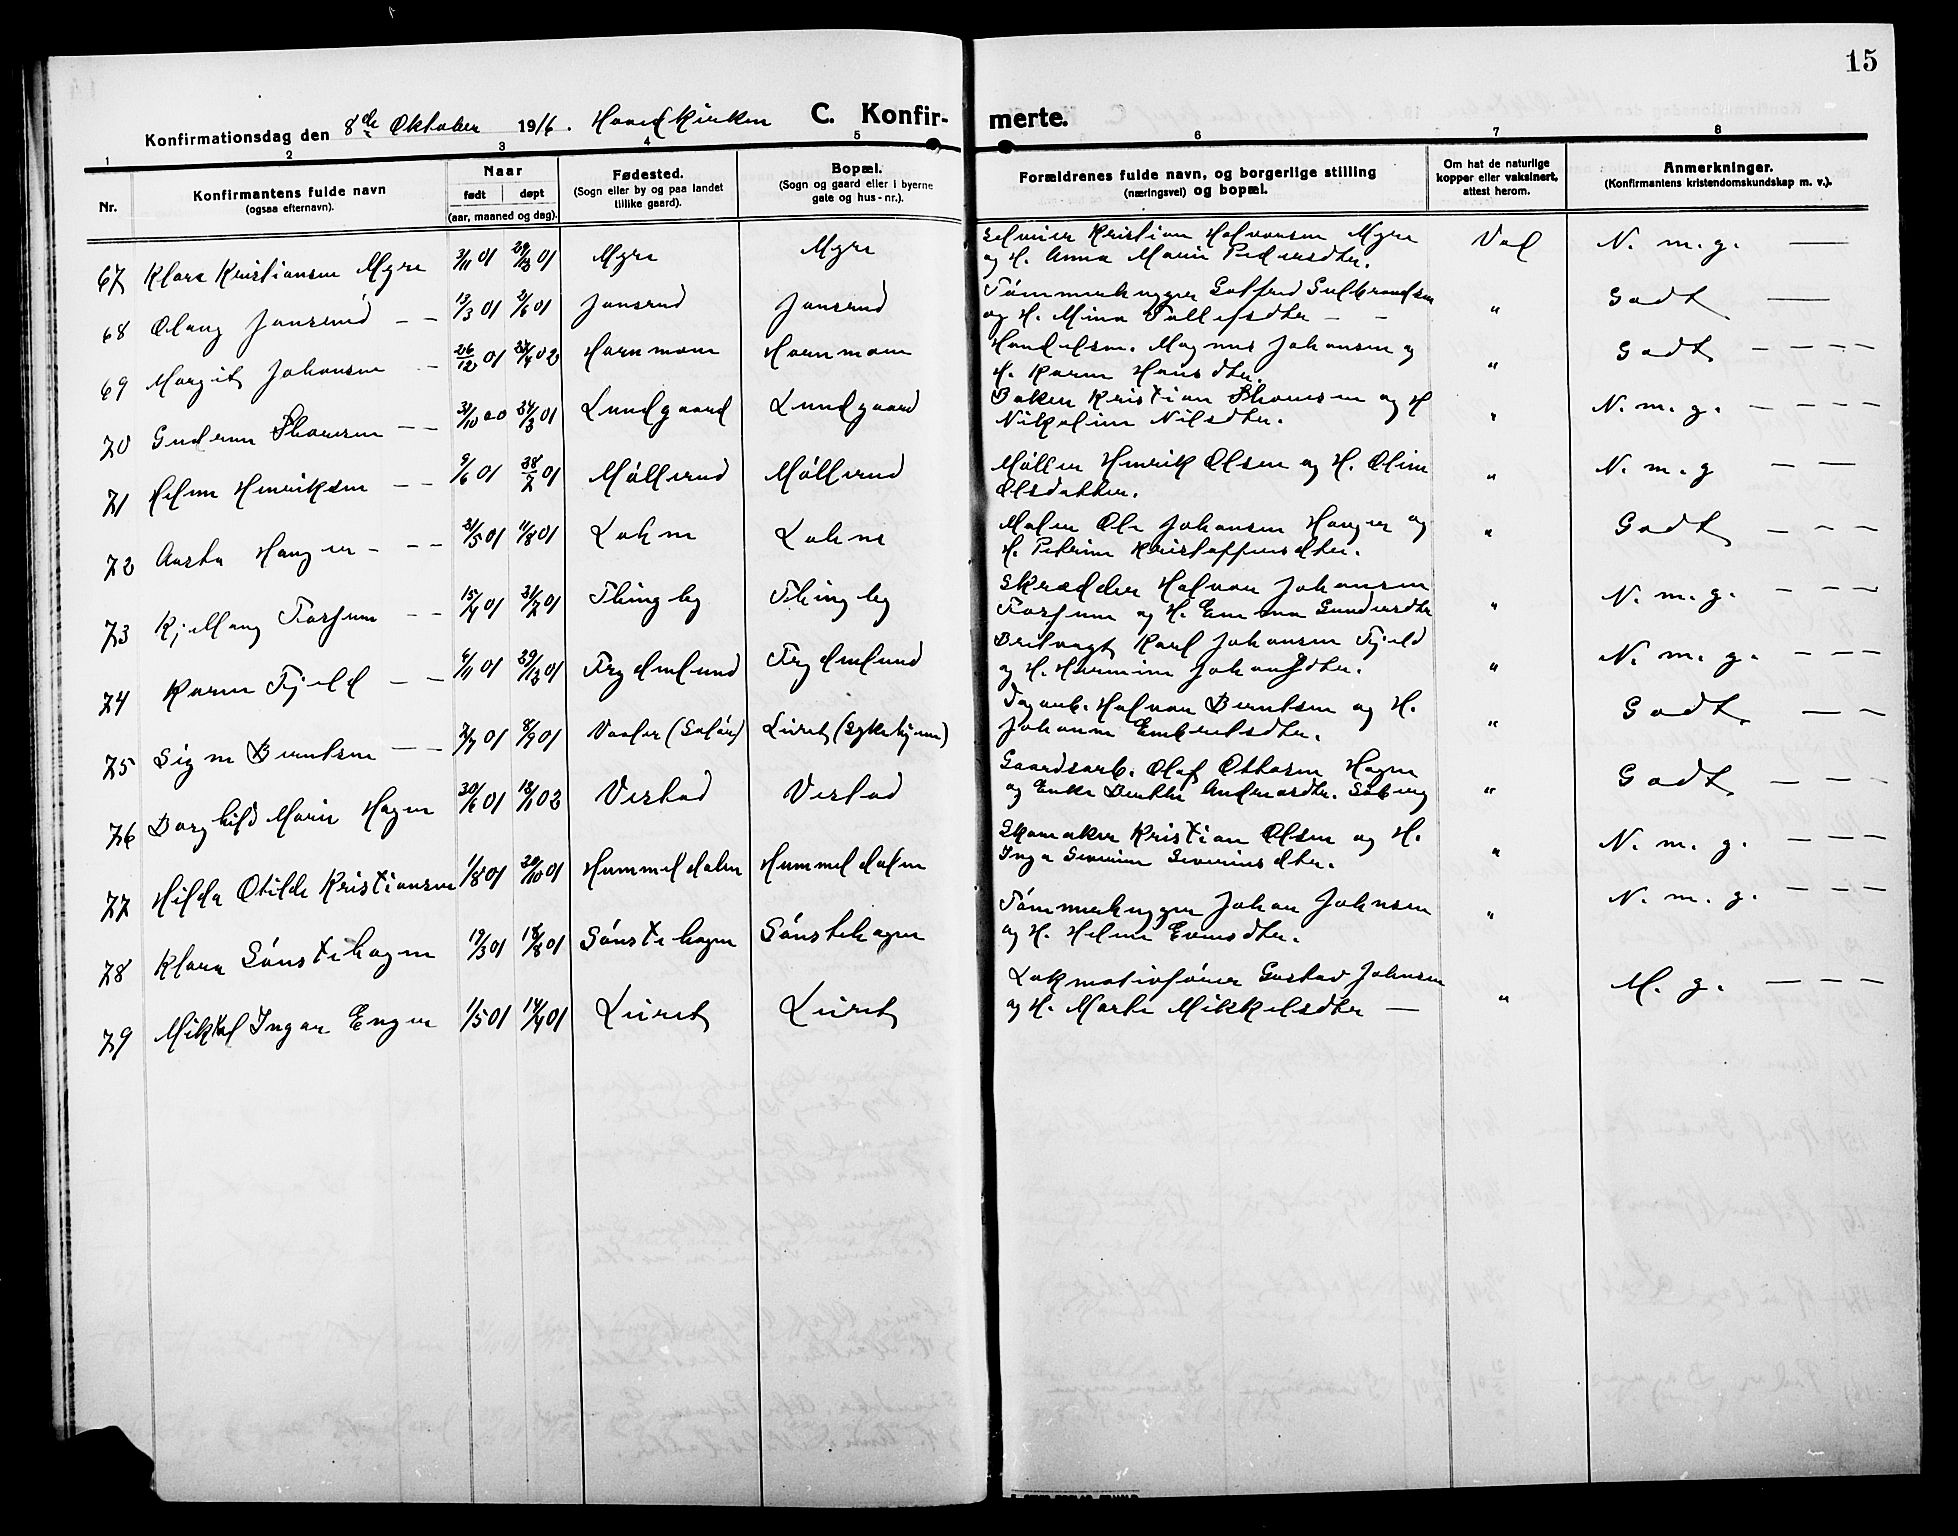 15
Konfirmationsdag den 8de Oktober 1916. Hovedkirken C. Konfirmerte.
1 2 3 4 5 6 7 8
Nr.
Konfirmantens fulde navn
(ogsaa efternavn).
Naar
født døpt
(aar, maaned og dag).
Fødested.
(Sogn eller by og paa landet
tillike gaard).
Bopæl.
(Sogn og gaard eller i byerne
gate og hus-nr.).
Forældrenes fulde navn, og borgerlige stilling
(næringsvei) og bopæl.
Om hat de naturlige
kopper eller vaksinert,
attest herom.
Anmerkninger.
(Konfirmantens kristendomskundskap m. v.).
67 Klara Kristiansen Myre 3/11 01 29/12 01 Myre Myre Kristian Halvorsen Myre Val N. m. g. —
og H. Anna Marie Pedersdter.
68 Olaug Jonsrud — — 13/3 01 2/6 01 Jonsrud Jonsrud Tømmerhugger Gotfred Gulbrandsen " Godt —
og H. Mina Tollefsdter — -
69 Margit Johansen - 26/12 01 02 Hornmoen Hornmoen Handelsm. Magnus Johansen og " Godt — — — —
H. Karen Hansdter.
70 Gudrun Thoresen — — 00 24/3 01 Lundgaard Lundgaard Baker Kristian Thoresen og H " N. m. g. — — — —
Nikoline Nilsdter.
71 Helene Henriksen — — 9/6 01 28/7 01 Møllerud Møllerud Møller Henrik Olsen og H. Oline " N. m. g — —
Olsdatter.
72 Aasta Hanger - — — 01 11/8 01 Lohne Lohne Maler Ole Johansen Hanger og " Godt — — —
H. Petrine Kristoffersdter.
73 Kjellaug Forsum — — 15/4 01 01 Thingby Thingby Skrædder Halvor Johansen " N. m. g. — — —
Forsum og H. Emma Gundersdter
74 Karen Fjeld — — 6/11 01 29/12 01 Frydenlund Frydenlund Karl Johansen Fjeld " N. m. g. — — —
og H. Hermine Johansdter.
75 Signe Berntsen — — 2/7 01 8/9 01 Vaaler (Solør) Leiret (Sykehjem) Dagarb. Halvor Berntsen og H. " Godt — —
Johanne Embretsdter.
76 Borghild Marie Hagen 30/6 01 18/1 02 Vestad Vestad Gaardsarb. Olaf Ottosen Hagen " Godt — — —
og Enke Berthe Andreasdter.
77 Hilda Otilde Kristiansen 1/8 01 20/10 01 Hummeldalen Hummeldalen Skomaker Kristian Olsen og H. " N. m. g. — — —
Inga Severine Severinsdter.
78 Klara Sønstehagen 19/3 01 18/8 01 Sønstehagen Sønstehagen Tømmerhugger Johan Johnsen " N. m. g. — — —
og H. Helene Evensdter.
79 Mikkel Ingar Enger 1/5 01 14/7 01 Leiret Leiret Lokomotivfører Gustav Johnsen " M. g. — — —
og H. Marte Mikkelsdter —